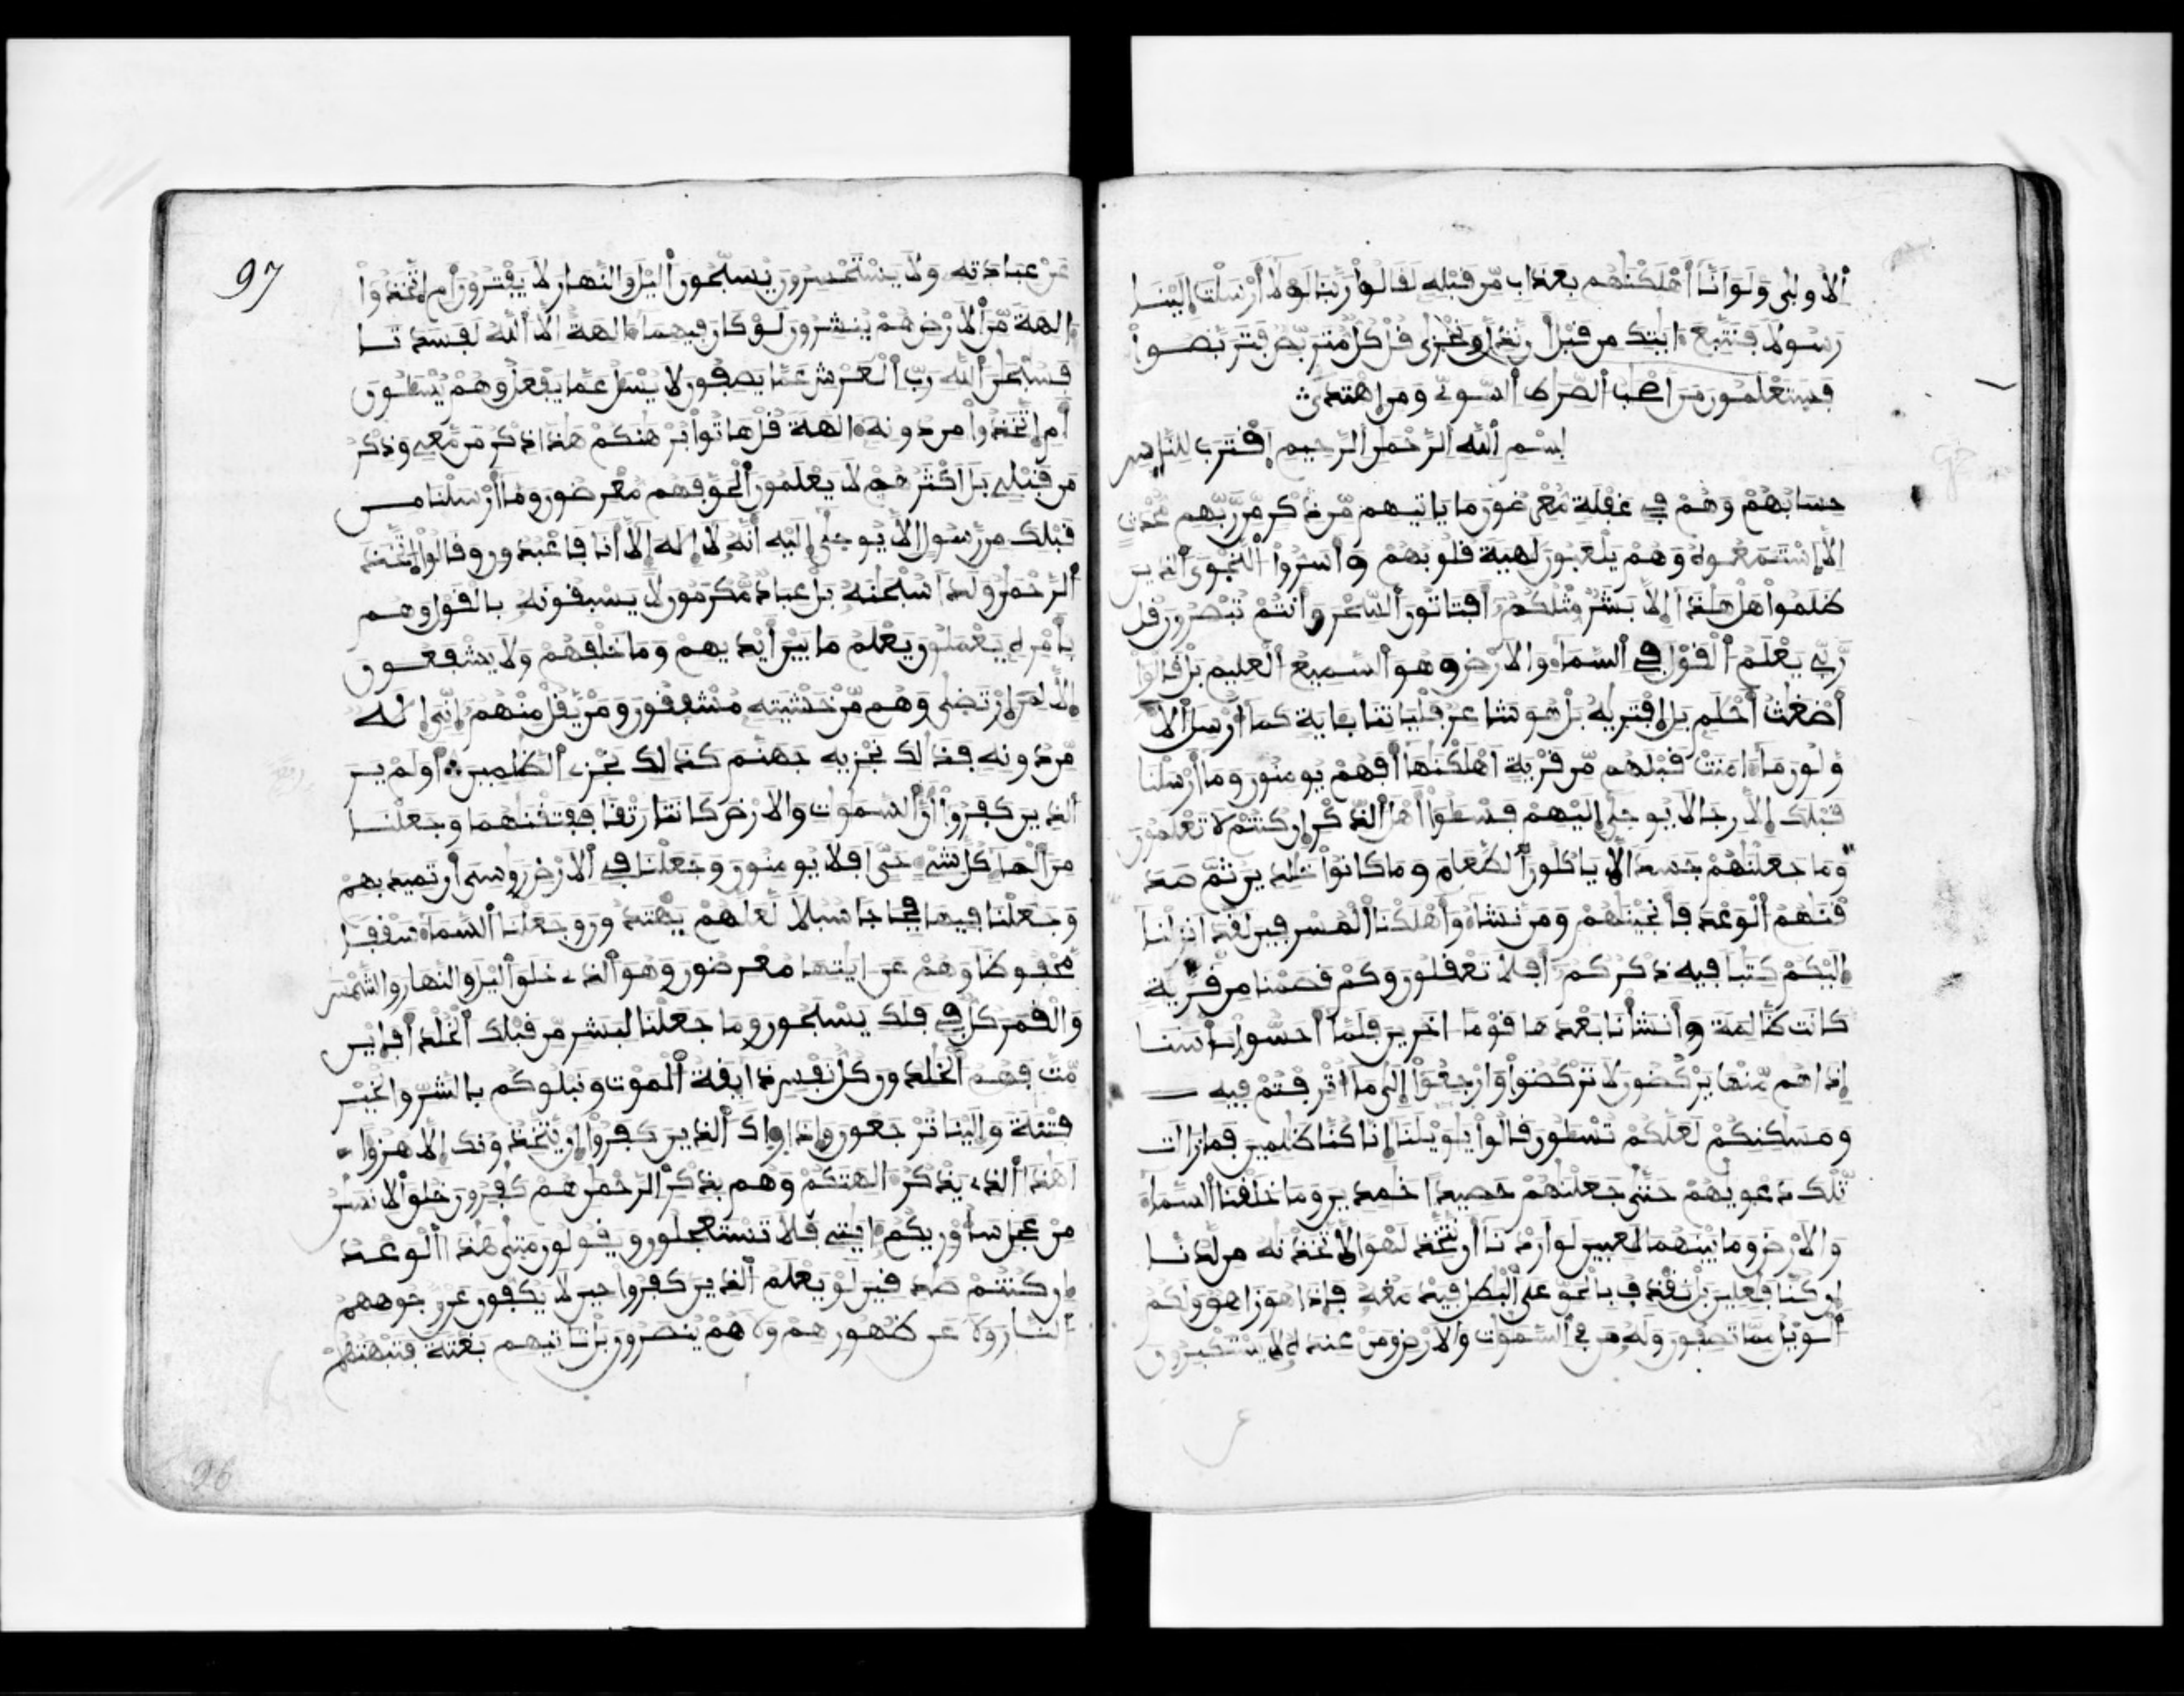 الاولى ولو انا اهلكنهم بعذاب من قبله لفالوا ربنا لولا ارسلت الينا
رسولا فنتبع ءايتك من قبل ان نذل ونخزى فل كل متربص فتربصوا
فستعلمون من اصحب الصرط السوي ومن اهتدى
بسم الله الرحمن الرحيم افترب للناس
حسابهم وهم في غفلة معرضون ما ياتيهم من ذكر من ربهم محدث
الا استمعوه وهم يلعبون لهية فلوبهم واسروا النجوى الذين
ظلموا هل هذا الا بشر مثلكم افتاتون السحر وانتم تبصرون فل
ربي يعلم الفول في السماء والارض وهو السميع العليم بل فالوا
اضغث احلم بل افتريه بل هو شاعر فلياتنا بءاية كما ارسل الا
ولون ما ءامنت فبلهم من فرية اهلكنها افهم يومنون وما ارسلنا
فبلك الا رجالا يوحى اليهم فسءلوا اهل الذكر ان كنتم لا تعلمون
وما جعلنهم جسدا لا ياكلون الطعام وما كانوا خلدين ثم صد
فنهم الوعد فانجينهم ومن نشاء واهلكنا المسرفين لفد انزلنا
اليكم كتبا فيه ذكركم افلا تعفلون وكم فصمنا من فرية
كانت ظالمة وانشانا بعدها فوما ءاخرين فلما احسوا باسنا
اذا هم منها يركضون لا تركضوا وارجعوا الى ما اترفتم فيه
ومسكنكم لعلكم تسءلون فالوا يويلنا انا كنا ظلمين فما زالت
تلك دعويهم حتى جعلنهم حصيدا خمدين وما خلفنا السماء
والارض وما بينهما لعبين لو اردنا ان نتخذ لهوا لاتخذنه من لدنا
ان كنا فعلين بل نفذف بالحق على البطل فيدمغه فاذا هو زاهق ولكم
الويل مما تصفون وله من في السموت والارض ومن عنده لا يستكبرون
97
عن عبادته ولا يستحسرون يسبحون اليل والنهار لا يفترون ام اتخذوا
ءالهة من الارض هم ينشرون لو كان فيهما ءالهة الا الله لفسدتا
فسبحن الله رب العرش عما يصفون لا يسءل عما يفعل وهم يسءلون
ام اتخذوا من دونه ءالهة فل هاتوا برهنكم هذا ذكر من معي وذكر
من فبلي بل اكثرهم لا يعلمون الحق فهم معرضون وما ارسلنا من
فبلك من رسول الا يوحى اليه انه لا اله الا انا فاعبدون وفالوا اتخذ
الرحمن ولدا سبحنه بل عباد مكرمون لا يسبفونه بالفول وهم
بامره يعملون يعلم ما بين ايديهم وما خلفهم ولا يشفعون
الا لمن ارتضى وهم من خشيته مشففون ومن يفل منهم اني اله
من دونه فذلك نجزيه جهنم كذلك نجزي الظلمين اولم ير
الذين كفروا ان السموت والارض كانتا رتفا ففتفنهما وجعلنا
من الماء كل شيء حي افلا يومنون وجعلنا في الارض روسي ان تميد بهم
وجعلنا فيها فجاجا سبلا لعلهم يهتدون وجعلنا السماء سففا
محفوظا وهم عن ءايتها معرضون وهو الذي خلق اليل والنهار والشمس
والفمر كل في فلك يسبحون وما جعلنا لبشر من فبلك الخلد افاين
مت فهم الخلدون كل نفس ذايفة الموت ونبلوكم بالشر والخير
فتنة والينا ترجعون واذا راك الذين كفروا ان يتخذونك الا هزؤا
اهذا الذي يذكر ءالهتكم وهم بذكر الرحمن هم كفرون خلق الانسن
من عجل ساوريكم ءايتي فلا تستعجلون ويفولون متى هذا الوعد
ان كنتم صدفين لو يعلم الذين كفروا حين لا يكفون عن وجوههم
النار ولا عن ظهورهم ولا هم ينصرون بل تاتيهم بغتة فتبهتهم
96